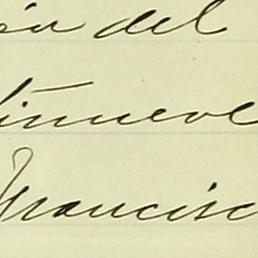 ón del
tinueve
Francisc